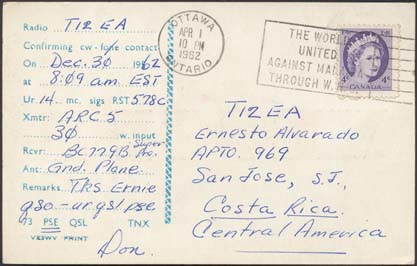 Radio TI2EA
Confirming cw-fone contact
On Dec. 30 1962
at 8:09 a.m. EST
Ur. 14. mc. sigs RST 578C
Xmtr: ARC 5
30 w. input
Rcvr: BC779B Super Pro.
Ant: Gnd. Plane
Remarks Tks Ernie
qso - ur qsl pse
73 PSE QSL TNX
VEIWV PRINT
Don.
OTTAWA
APR 1
10 PM
1962
ONTARIO
THE WORLD
UNITED
AGAINST MA
THROUGH W.
4¢ 4¢
CANADA
TI2EA
Ernesto Alvarado
APTO. 969
San Jose, S.J.,
Costa Rica.
Central America